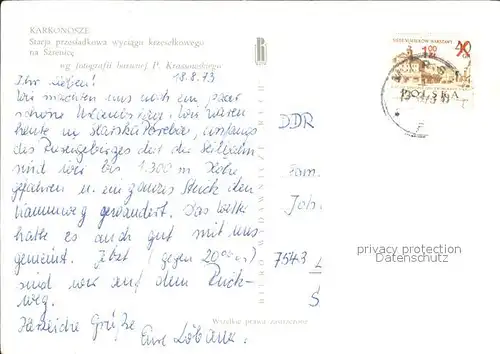 KARKONOSZE
Stacja przesiadkowa wyciągu krzesełkowego
na Szrenicę
wg fotografii barwnej P. Krassowskiego
18.8.73
Ihr Lieben!
Wir machten uns noch ein paar
schöne Urlaubstage. Wir waren
heute in
des Riesengebirges
sind wir bis 1.300 m Höhe
gefahren u. ein ganzes Stück den
Kammweg gewandert. Das Wetter
hatte es auch gut mit uns
gemeint. Jetzt (gegen 20⁰⁰ Uhr)
sind wir auf dem Rück-
weg.
Herzliche Grüße
BIURO WYDAWNICZE RUCH
Wszelkie prawa zastrzeżone
1,00
40
POLSKA
DDR
Fam.
Joh
7543 L
S
privacy protection
Datenschutz